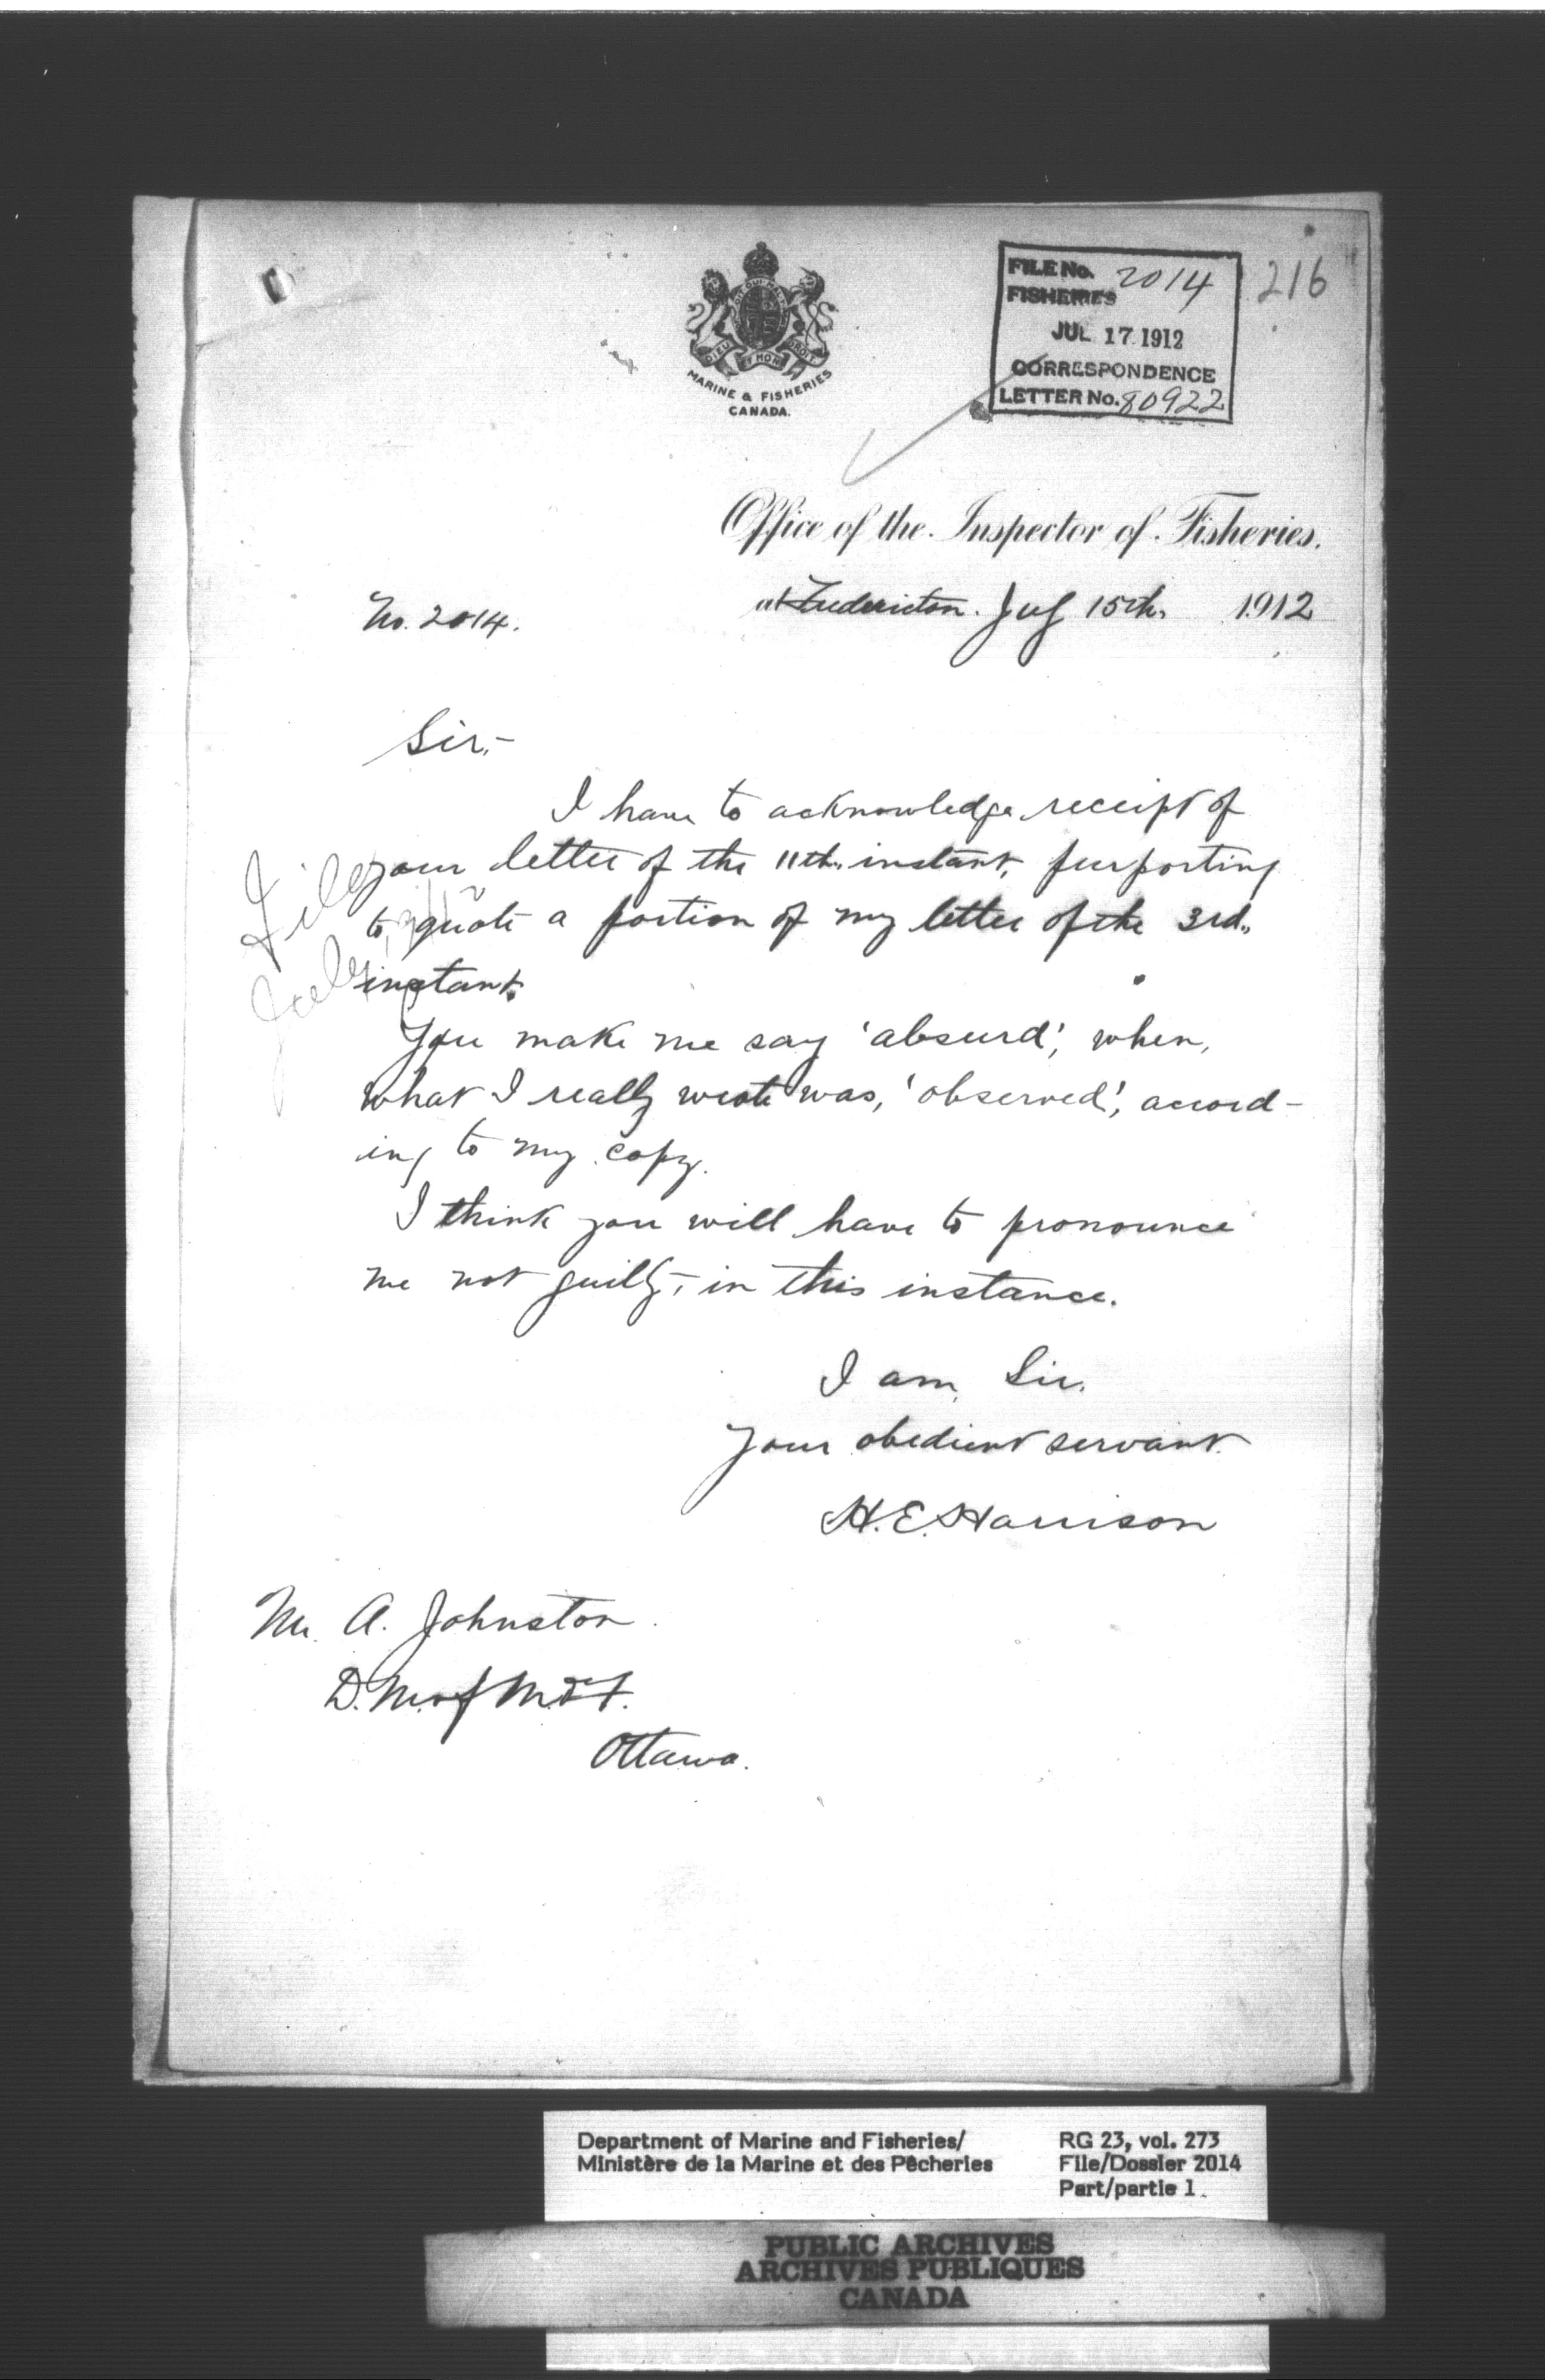 FILE No. 2014
FISHERIES
JUL 17 1912
CORRESPONDENCE
LETTER No. 80922
216
DIEU ET MON DROIT
MARINE & FISHERIES
CANADA.
Office of the Inspector of Fisheries.
at Fredericton. July 15th, 1912
No. 2014.
Sir,-
I have to acknowledge receipt of
your letter of the 11th, instant, purporting
to quote a portion of my letter of the 3rd,,
instant.
You make me say 'absurd', when,
what I really wrote was, 'observed', accord-
ing to my copy.
I think you will have to pronounce
me not guilty, in this instance.
I am, Sir,
Your obedient servant.
H.E. Harrison
Mr. A. Johnston
D.M. of M. & F.
Ottawa.
File
July
Department of Marine and Fisheries/
Ministère de la Marine et des Pêcheries
RG 23, vol. 273
File/Dossier 2014
Part/partie 1
PUBLIC ARCHIVES
ARCHIVES PUBLIQUES
CANADA